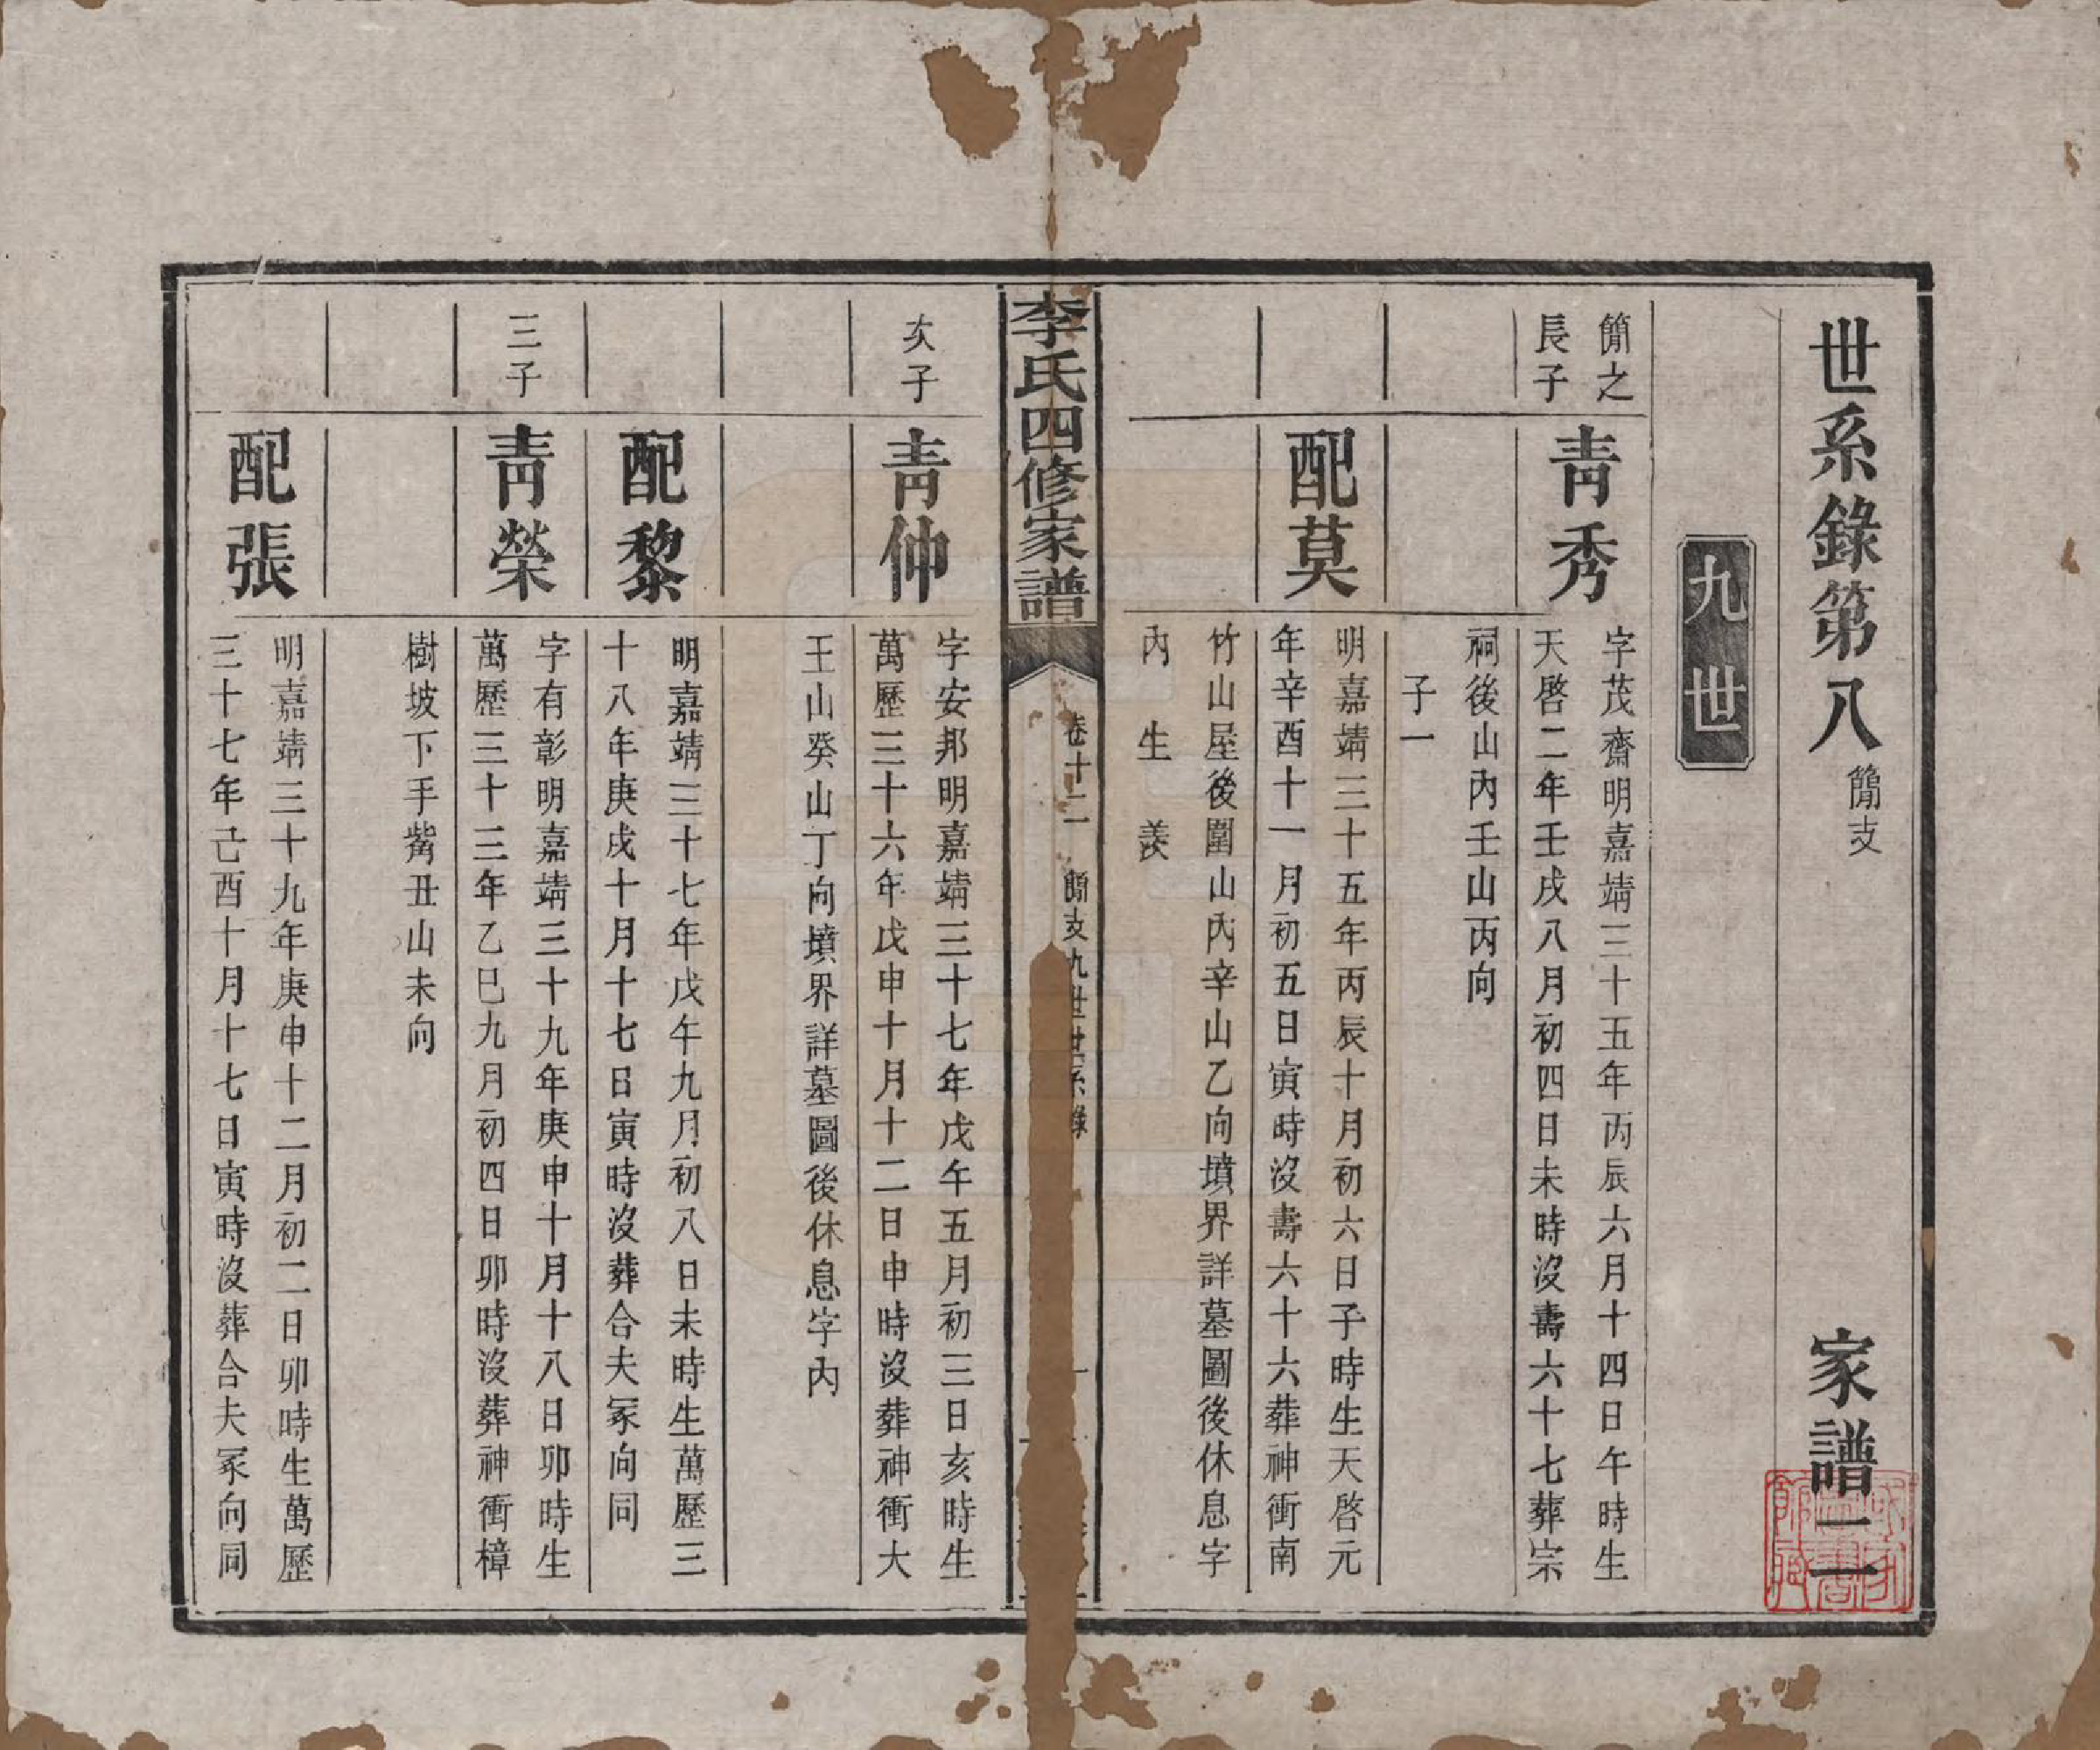 世系錄第八 簡支 家譜二
九世
簡之
長子
靑秀
字茂齋明嘉靖三十五年丙辰六月十四日午時生
天啓二年壬戌八月初四日未時沒壽六十七葬宗
祠後山內壬山丙向
子一
配莫
明嘉靖三十五年丙辰十月初六日子時生天啓元
年辛酉十一月初五日寅時沒壽六十六葬神衝南
竹山屋後圍山內辛山乙向墳界詳墓圖後休息字
內 生 羨
李氏四修家譜 卷十二 簡支九世世系錄
次子
靑仲
字安邦明嘉靖三十七年戊午五月初三日亥時生
萬歷三十六年戊申十月十二日申時沒葬神衝大
王山癸山丁向墳界詳墓圖後休息字內
配黎
明嘉靖三十七年戊午九月初八日未時生萬歷三
十八年庚戌十月十七日寅時沒葬合夫冢向同
三子
靑榮
字有彰明嘉靖三十九年庚申十月十八日卯時生
萬歷三十三年乙巳九月初四日卯時沒葬神衝樟
樹坡下手嘴丑山未向
配張
明嘉靖三十九年庚申十二月初二日卯時生萬歷
三十七年己酉十月十七日寅時沒葬合夫冢向同